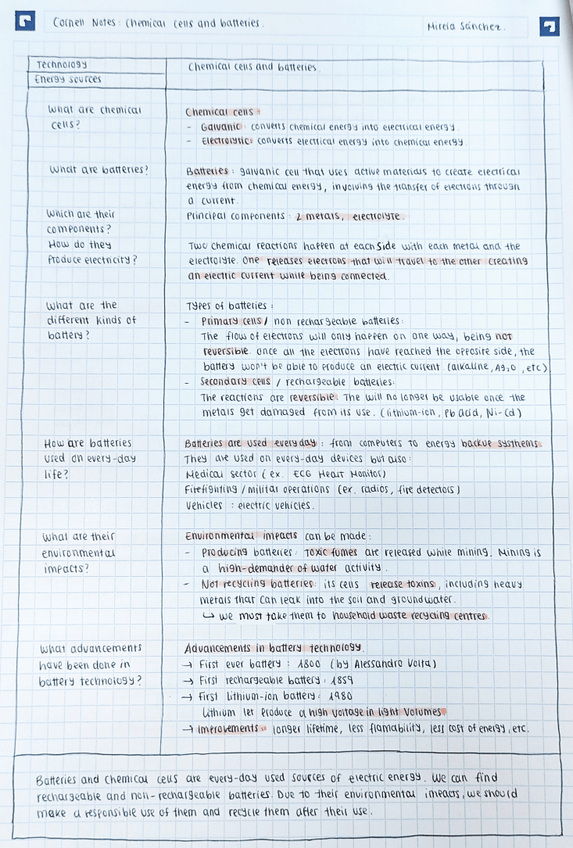 Cornell Notes: Chemical cells and batteries.
Mirela Sánchez.
Technology
Energy sources
Chemical cells and batteries
What are chemical cells?
Chemical cells:
- Galvanic: converts chemical energy into electrical energy
- Electrolytic: converts electrical energy into chemical energy
What are batteries?
Batteries: galvanic cell that uses active materials to create electrical
energy from chemical energy, involving the transfer of electrons through
a current.
Which are their
components?
Principal components: 2 metals, electrolyte.
How do they
produce electricity?
Two chemical reactions happen at each side with each metal and the
electrolyte. One releases electrons that will travel to the other creating
an electric current while being connected.
What are the
different kinds of
battery?
Types of batteries:
- Primary cells / non rechargeable batteries:
The flow of electrons will only happen on one way, being not
reversible. once all the electrons have reached the opposite side, the
battery won't be able to produce an electric current. (alkaline, Ag2O, etc)
- Secondary cells / rechargeable batteries:
The reactions are reversible. The will no longer be usable once the
metals get damaged from its use. (lithium-ion, Pb acid, Ni-Cd)
How are batteries
used on every-day
life?
Batteries are used everyday: from computers to energy backup systhems.
They are used on every-day devices but also:
Medical sector (ex. ECG Heart Monitor)
Firefighting / militar operations (ex. radios, fire detectors)
Vehicles: electric vehicles.
What are their
environmental
impacts?
Environmental impacts can be made:
- Producing batteries: toxic fumes are released while mining. Mining is
a high-demander of water activity.
- Not recycling batteries: its cells release toxins, including heavy
metals that can leak into the soil and groundwater.
↳ we must take them to household waste recycling centres.
What advancements
have been done in
battery technology?
Advancements in battery technology.
→ First ever battery: 1800 (by Alessandro Volta)
→ First rechargeable battery: 1859
→ First lithium-ion battery: 1980
Lithium let produce a high voltage in light volumes
→ Improvements: longer lifetime, less flamability, less cost of energy, etc.
Batteries and chemical cells are every-day used sources of electric energy. We can find
rechargeable and non-rechargeable batteries. Due to their environmental impacts, we should
make a responsible use of them and recycle them after their use.